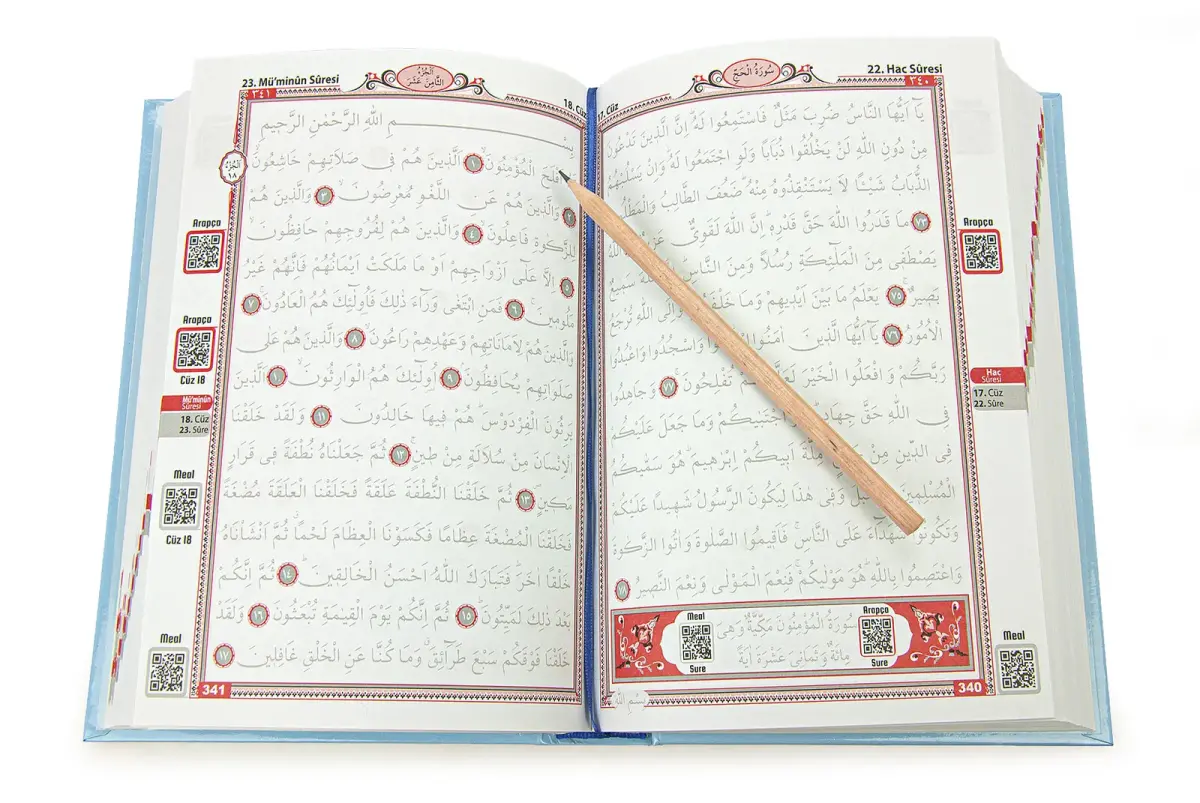 22. Hac Sûresi
سُورَةُ الْحَجِّ
٣٤٠
17. Cüz
يَٓا اَيُّهَا النَّاسُ ضُرِبَ مَثَلٌ فَاسْتَمِعُوا لَهُ اِنَّ الَّذٖينَ تَدْعُونَ
مِنْ دُونِ اللّٰهِ لَنْ يَخْلُقُوا ذُبَابًا وَلَوِ اجْتَمَعُوا لَهُ وَاِنْ يَسْلُبْهُمُ
الذُّبَابُ شَيْـًٔا لَا يَسْتَنْقِذُوهُ مِنْهُ ضَعُفَ الطَّالِبُ وَالْمَطْلُوبُ
٧٣ مَا قَدَرُوا اللّٰهَ حَقَّ قَدْرِهٖ اِنَّ اللّٰهَ لَقَوِيٌّ
يَصْطَفٖي مِنَ الْمَلٰٓئِكَةِ رُسُلًا وَمِنَ النَّاسِ سَمٖيعٌ
بَصٖيرٌ ٧٥ يَعْلَمُ مَا بَيْنَ اَيْدٖيهِمْ وَمَا خَلْفَهُمْ وَاِلَى اللّٰهِ تُرْجَعُ
الْاُمُورُ ٧٦ يَٓا اَيُّهَا الَّذٖينَ اٰمَنُوا وَاسْجُدُوا وَاعْبُدُوا
رَبَّكُمْ وَافْعَلُوا الْخَيْرَ تُفْلِحُونَ ٧٧ وَجَاهِدُوا
فِي اللّٰهِ حَقَّ جِهَادِهٖ اجْتَبٰيكُمْ وَمَا جَعَلَ عَلَيْكُمْ
فِي الدّٖينِ مِنْ مِلَّةَ اَبٖيكُمْ اِبْرٰهٖيمَ هُوَ سَمّٰيكُمُ
الْمُسْلِمٖينَ وَفٖي هٰذَا لِيَكُونَ الرَّسُولُ شَهٖيدًا عَلَيْكُمْ
وَتَكُونُوا شُهَدَٓاءَ عَلَى النَّاسِ فَاَقٖيمُوا الصَّلٰوةَ وَاٰتُوا الزَّكٰوةَ
وَاعْتَصِمُوا بِاللّٰهِ هُوَ مَوْلٰيكُمْ فَنِعْمَ الْمَوْلٰى وَنِعْمَ النَّصٖيرُ ٧٨
سُورَةُ الْمُؤْمِنُونَ مَكِّيَّةٌ وَهِيَ
مِائَةٌ وَثَمَانِيَ عَشْرَةَ اٰيَةً
Arapça
Sure
Meal
Sure
340
Arapça
Hac
Sûresi
17. Cüz
22. Sûre
Meal
23. Mü'minûn Sûresi
اَلْجُزْءُ
الثَّامِنَ عَشَرَ
٣٤١
18. Cüz
بِسْمِ اللّٰهِ الرَّحْمٰنِ الرَّحٖيمِ
اَفْلَحَ الْمُؤْمِنُونَ ١ اَلَّذٖينَ هُمْ فٖي صَلَاتِهِمْ خَاشِعُونَ
٢ وَالَّذٖينَ هُمْ عَنِ اللَّغْوِ مُعْرِضُونَ ٣ وَالَّذٖينَ هُمْ
لِلزَّكٰوةِ فَاعِلُونَ ٤ وَالَّذٖينَ هُمْ لِفُرُوجِهِمْ حَافِظُونَ
٥ اِلَّا عَلٰٓى اَزْوَاجِهِمْ اَوْ مَا مَلَكَتْ اَيْمَانُهُمْ فَاِنَّهُمْ غَيْرُ
مَلُومٖينَ ٦ فَمَنِ ابْتَغٰى وَرَٓاءَ ذٰلِكَ فَاُولٰٓئِكَ هُمُ الْعَادُونَ ٧
وَالَّذٖينَ هُمْ لِاَمَانَاتِهِمْ وَعَهْدِهِمْ رَاعُونَ ٨ وَالَّذٖينَ هُمْ عَلٰى
صَلَوَاتِهِمْ يُحَافِظُونَ ٩ اُولٰٓئِكَ هُمُ الْوَارِثُونَ ١٠ اَلَّذٖينَ
يَرِثُونَ الْفِرْدَوْسَ هُمْ فٖيهَا خَالِدُونَ ١١ وَلَقَدْ خَلَقْنَا
الْاِنْسَانَ مِنْ سُلَالَةٍ مِنْ طٖينٍ ١٢ ثُمَّ جَعَلْنَاهُ نُطْفَةً فٖي قَرَارٍ
مَكٖينٍ ١٣ ثُمَّ خَلَقْنَا النُّطْفَةَ عَلَقَةً فَخَلَقْنَا الْعَلَقَةَ مُضْغَةً
فَخَلَقْنَا الْمُضْغَةَ عِظَامًا فَكَسَوْنَا الْعِظَامَ لَحْمًا ثُمَّ اَنْشَاْنَاهُ
خَلْقًا اٰخَرَ فَتَبَارَكَ اللّٰهُ اَحْسَنُ الْخَالِقٖينَ ١٤ ثُمَّ اِنَّكُمْ
بَعْدَ ذٰلِكَ لَمَيِّتُونَ ١٥ ثُمَّ اِنَّكُمْ يَوْمَ الْقِيٰمَةِ تُبْعَثُونَ ١٦ وَلَقَدْ
خَلَقْنَا فَوْقَكُمْ سَبْعَ طَرَٓائِقَ وَمَا كُنَّا عَنِ الْخَلْقِ غَافِلٖينَ ١٧
341
اَلْجُزْءُ
١٨
Arapça
Arapça
Cüz 18
Mü'minûn
Sûresi
18. Cüz
23. Sûre
Meal
Cüz 18
Meal